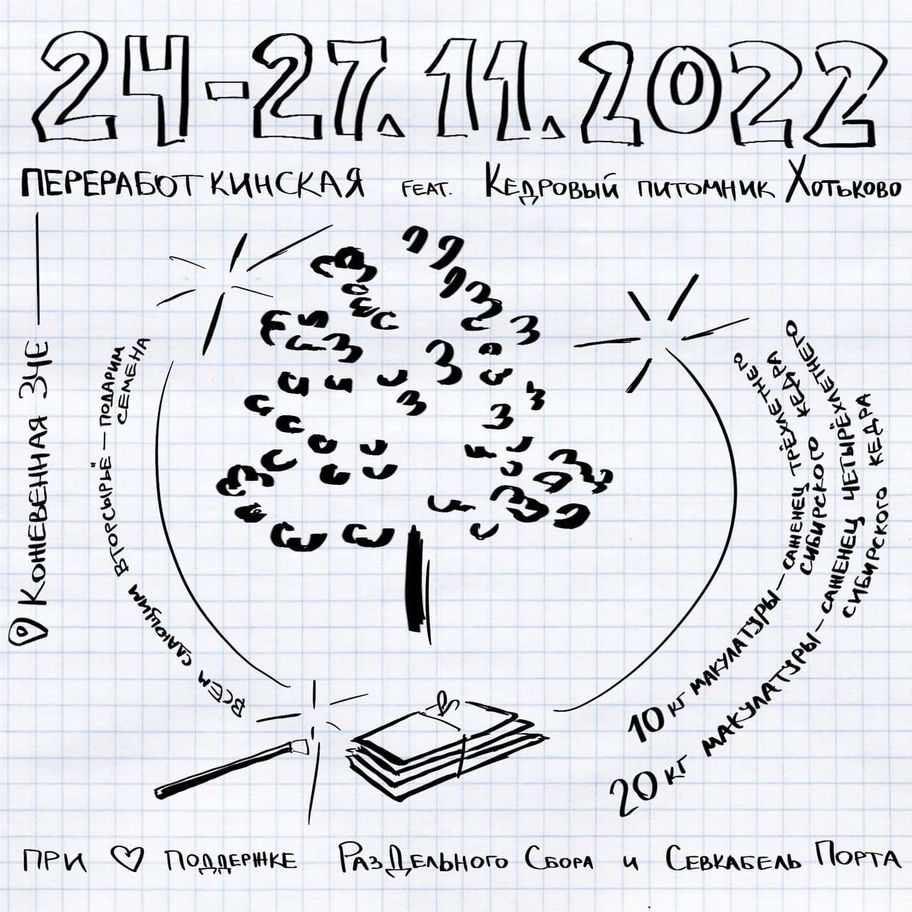 24-27.11.2022
ПЕРЕРАБОТКИНСКАЯ FEAT. КЕДРОВЫЙ ПИТОМНИК ХОТЬКОВО
КОЖЕВЕННАЯ 34Е
ВСЕМ СДАЮЩИМ ВТОРСЫРЬЁ — ПОДАРИМ
СЕМЕНА
10 КГ МАКУЛАТУРЫ — САЖЕНЕЦ ТРЁХЛЕТНЕГО
СИБИРСКОГО КЕДРА
20 КГ МАКУЛАТУРЫ — САЖЕНЕЦ ЧЕТЫРЁХЛЕТНЕГО
СИБИРСКОГО КЕДРА
ПРИ ♡ ПОДДЕРЖКЕ РАЗДЕЛЬНОГО СБОРА И СЕВКАБЕЛЬ ПОРТА